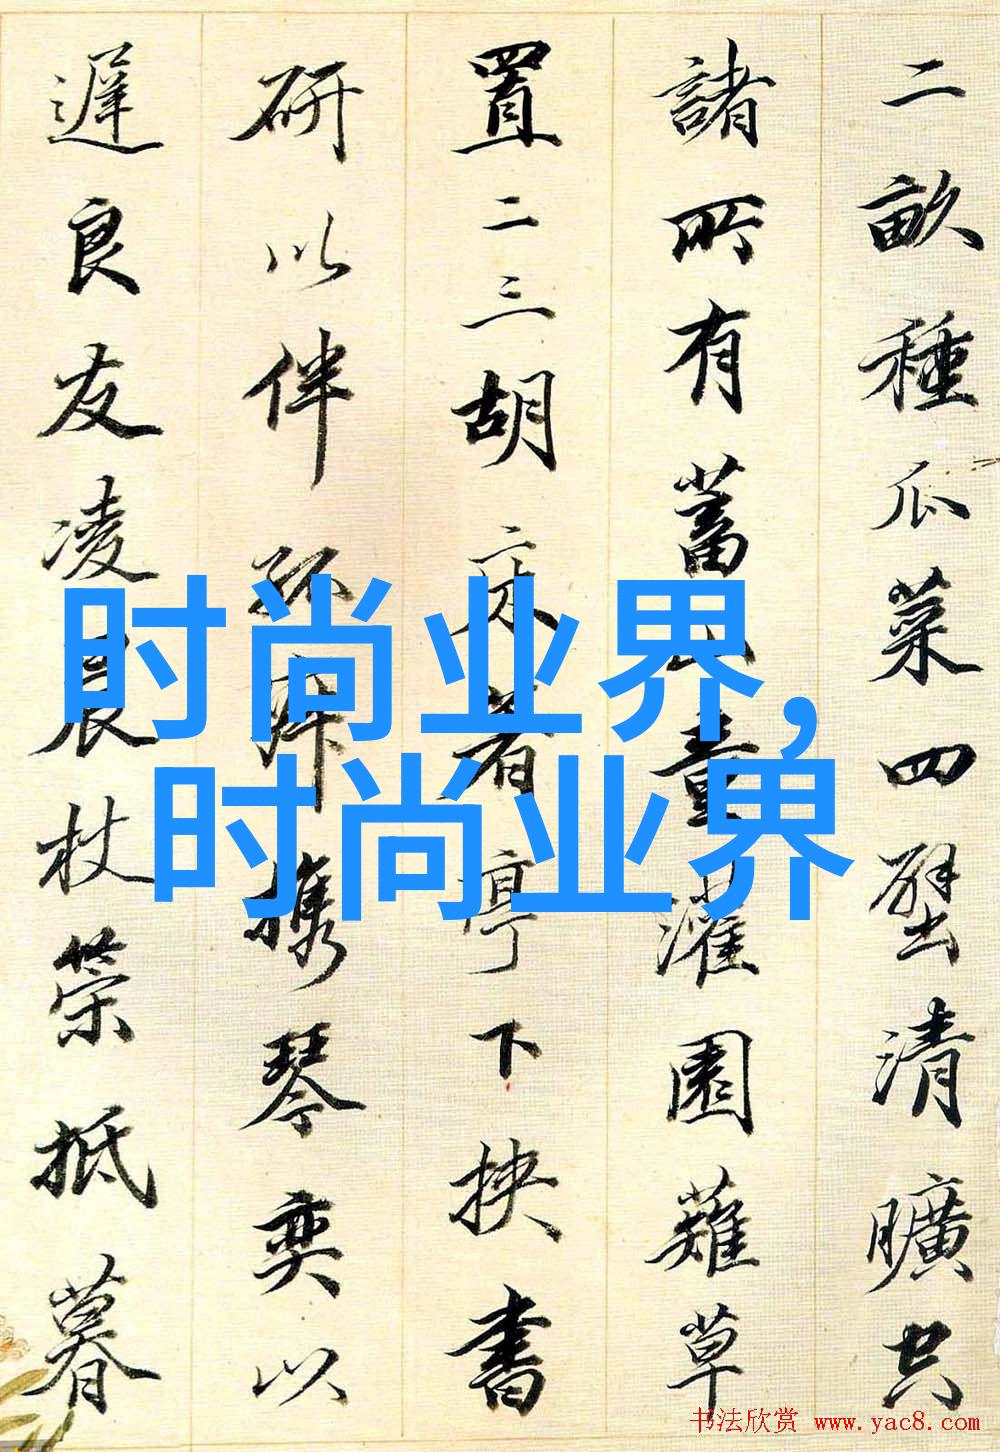 二畝種瓜菜四壁清曠空
諸所有蓄山童灌園薙草
置二三胡床著亭下挟書
研以伴孤寂携琴奕以
遲良友凌晨杖策抵暮
时尚业界,
时尚业界
书法欣赏 www.yac8.com